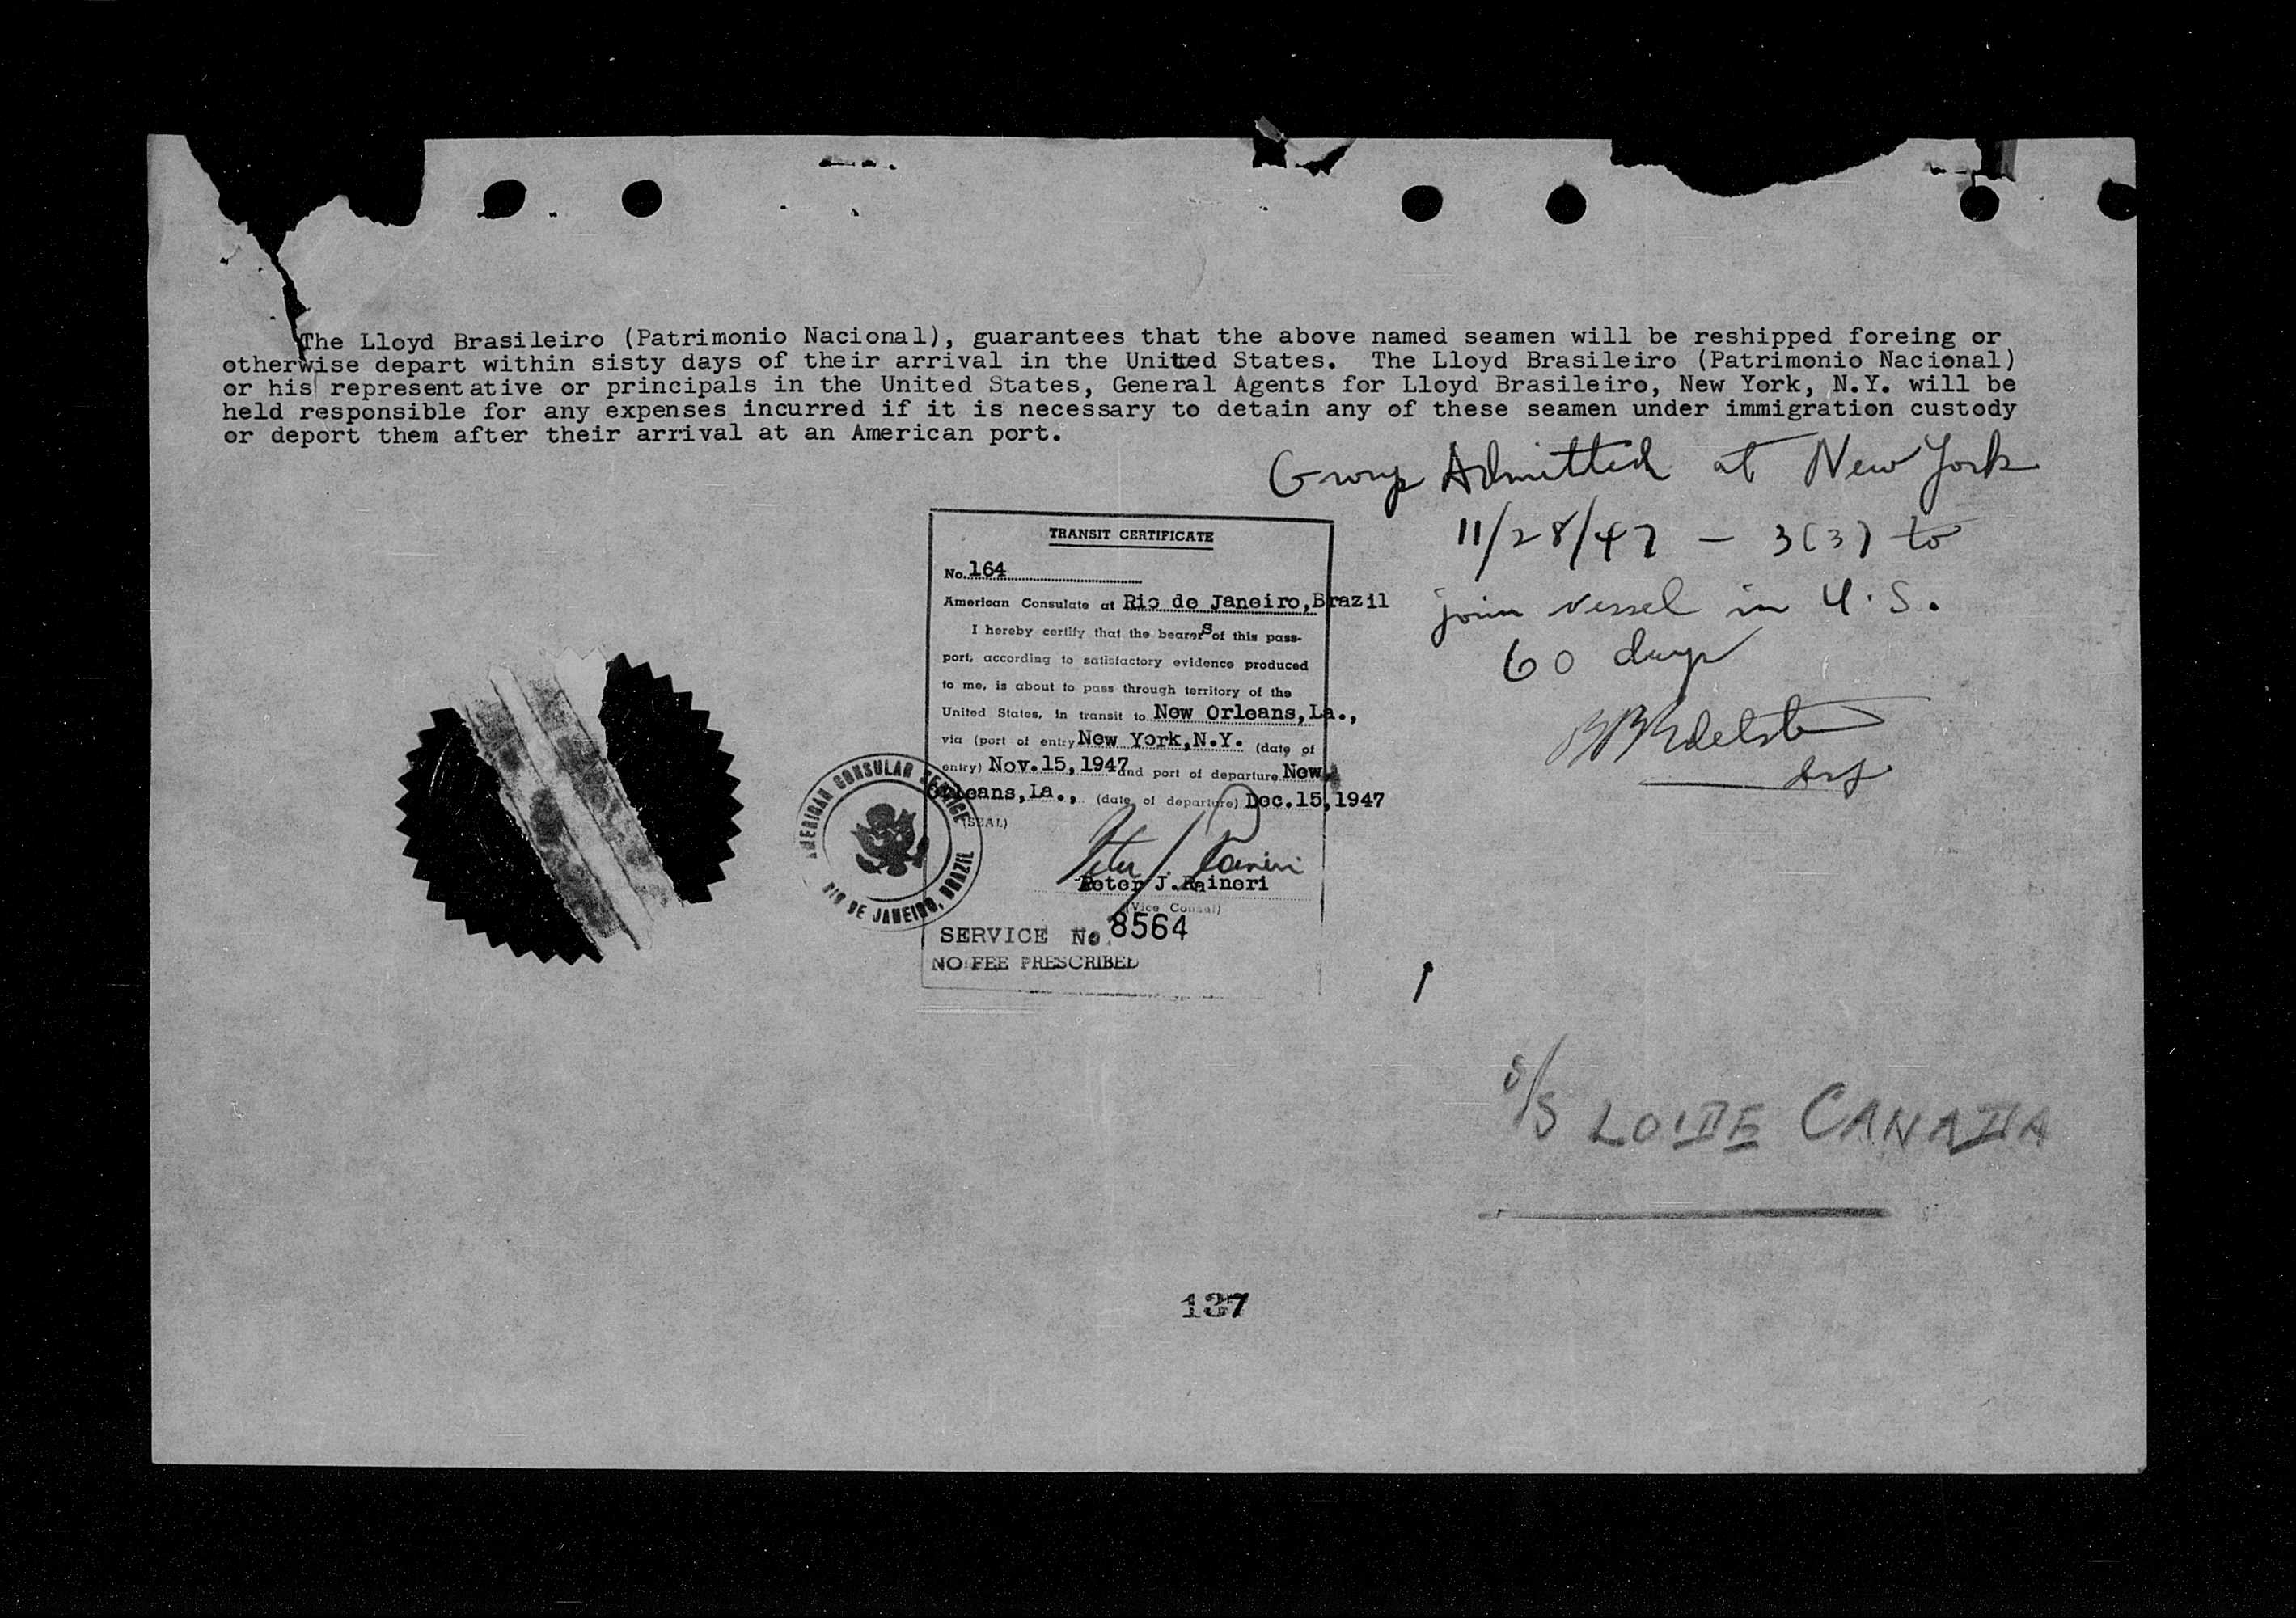 The Lloyd Brasileiro (Patrimonio Nacional), guarantees that the above named seamen will be reshipped foreing or
otherwise depart within sisty days of their arrival in the United States. The Lloyd Brasileiro (Patrimonio Nacional)
or his representative or principals in the United States, General Agents for Lloyd Brasileiro, New York, N.Y. will be
held responsible for any expenses incurred if it is necessary to detain any of these seamen under immigration custody
or deport them after their arrival at an American port.
Group Admitted at New York
11/28/47 - 3(3) to
join vessel in U.S.
60 days
TRANSIT CERTIFICATE
No. 164
American Consulate at Rio de Janeiro, Brazil
I hereby certify that the bearers of this pass-
port, according to satisfactory evidence produced
to me, is about to pass through territory of the
United States, in transit to New Orleans, La.,
via (port of entry New York, N.Y. (date of
entry) Nov. 15, 1947 and port of departure New
Orleans, La., (date of departure) Dec. 15, 1947
(SEAL)
AMERICAN CONSULAR SERVICE
RIO DE JANEIRO, BRAZIL
Peter J. Raineri
Peter J. Raineri
(Vice Consul)
SERVICE No. 8564
NO FEE PRESCRIBED
S/S LOIDE CANADA
137